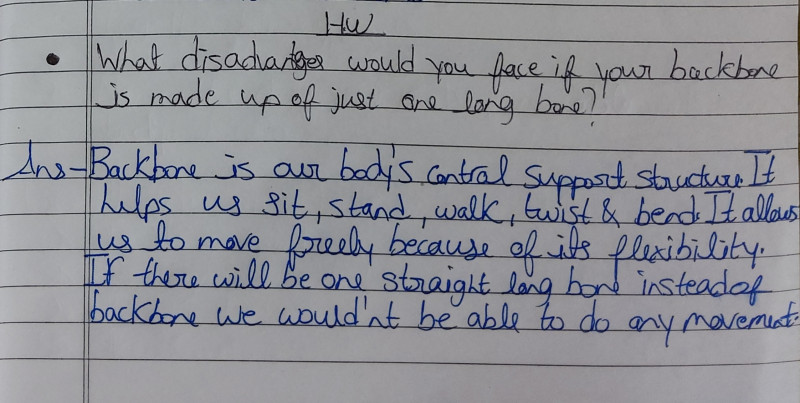 HW
• What disadvantges would you face if your backbone
is made up of just one long bone?
Ans- Backbone is our body's central support structure. It
helps us sit, stand, walk, twist & bend. It allows
us to move freely because of its flexibility.
If there will be one straight long bone instead of
backbone we would'nt be able to do any movement.